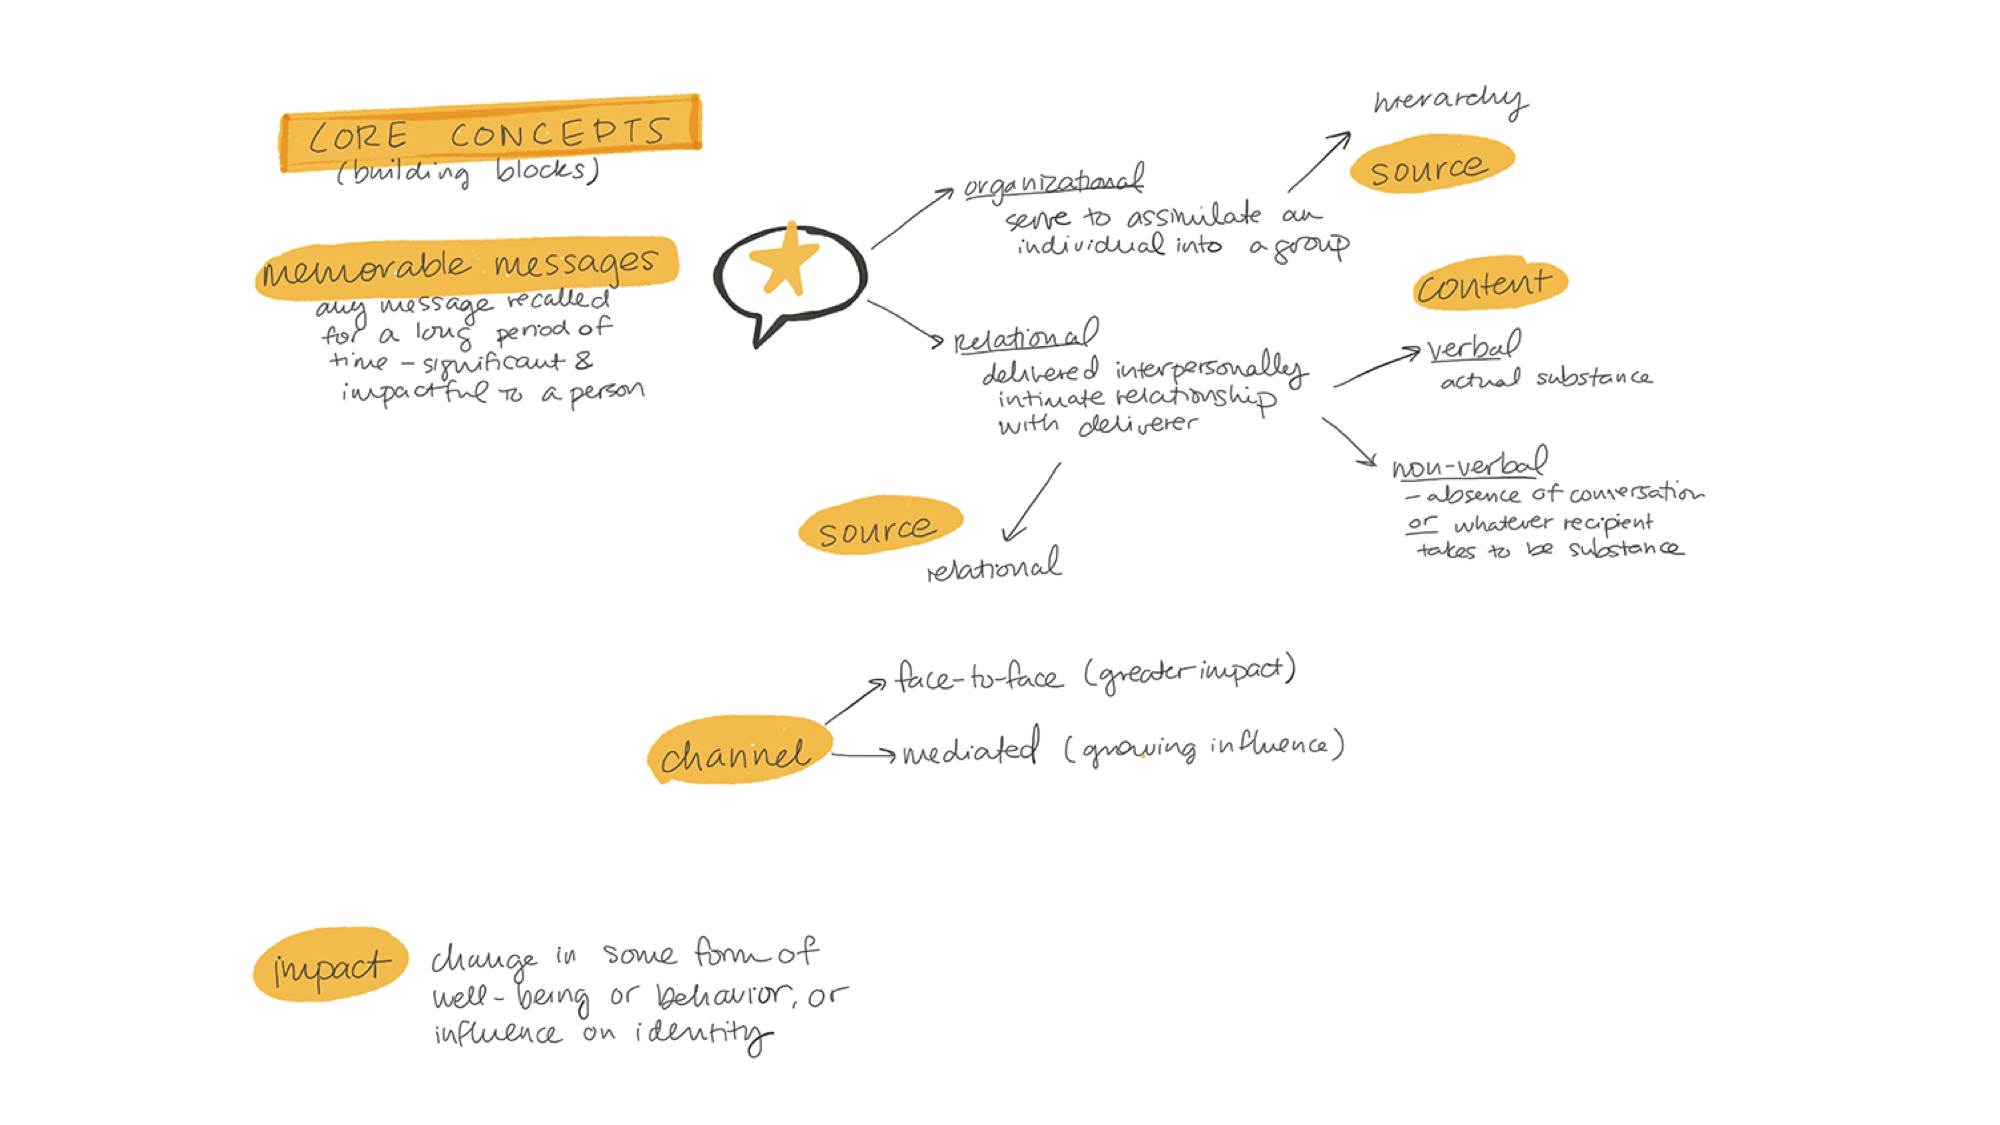 CORE CONCEPTS
(building blocks)
memorable messages
any message recalled
for a long period of
time - significant &
impactful to a person
organizational
serve to assimilate an
individual into a group
hierarchy
source
relational
delivered interpersonally
intimate relationship
with deliverer
content
verbal
actual substance
non-verbal
- absence of conversation
or whatever recipient
takes to be substance
source
relational
channel
face-to-face (greater impact)
mediated (growing influence)
impact
change in some form of
well-being or behavior, or
influence on identity